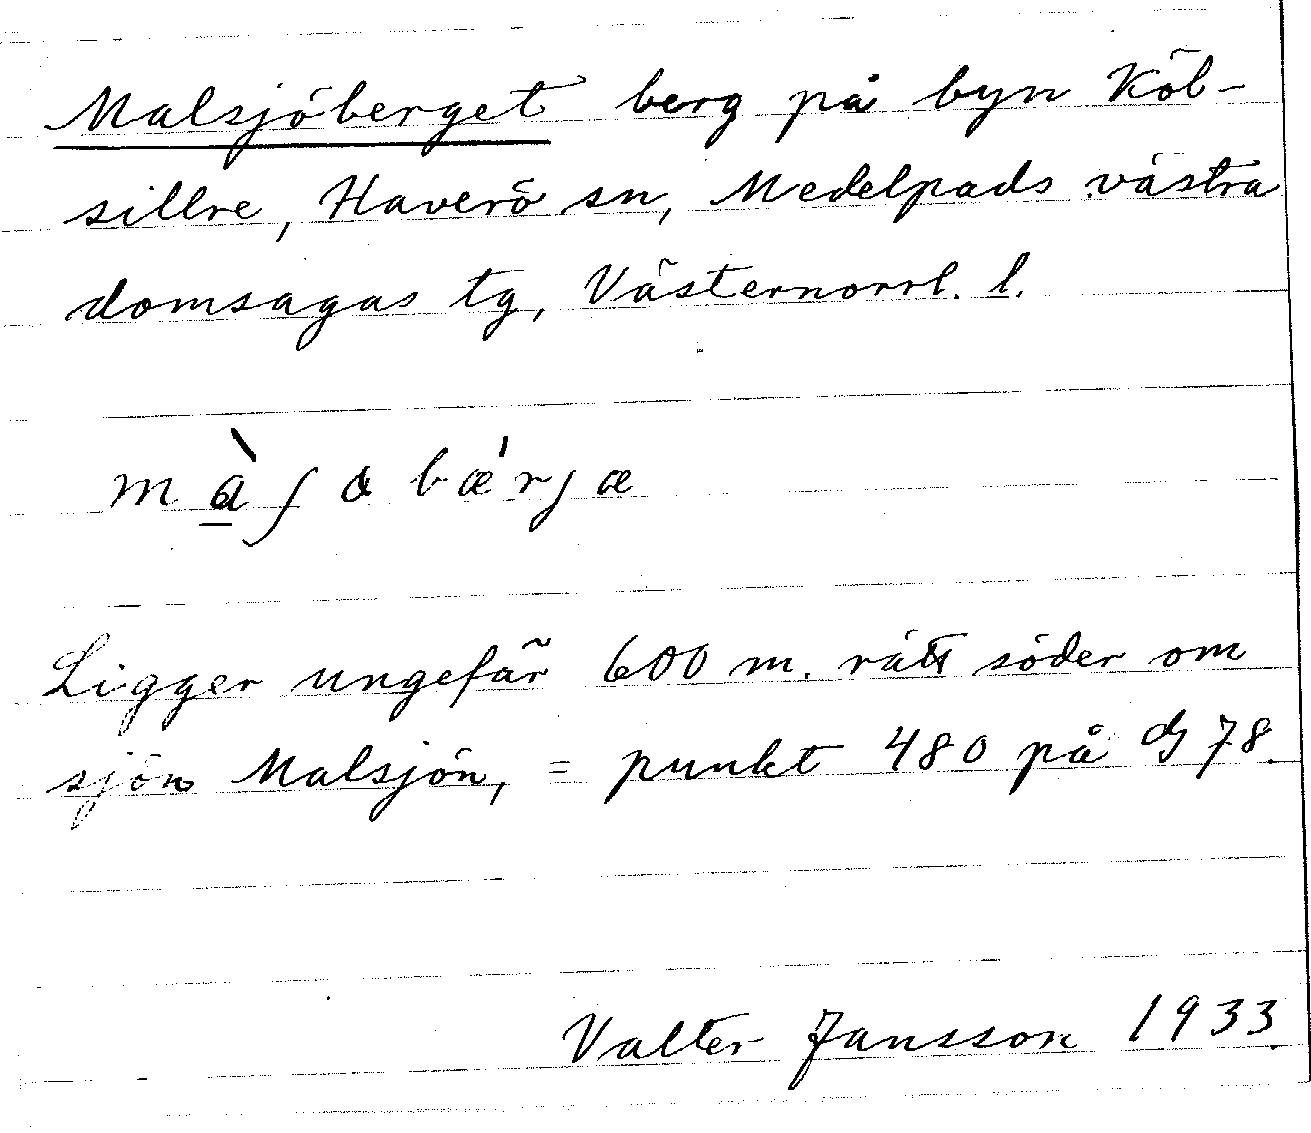 Malsjöberget berg på byn Köl-
sillre, Haverö sn, Medelpads västra
domsagas tg, Västernorrl. l.
Ligger ungefär 600 m. rätt söder om
sjön Malsjön, = punkt 480 på 78.
Valter Jansson 1933.